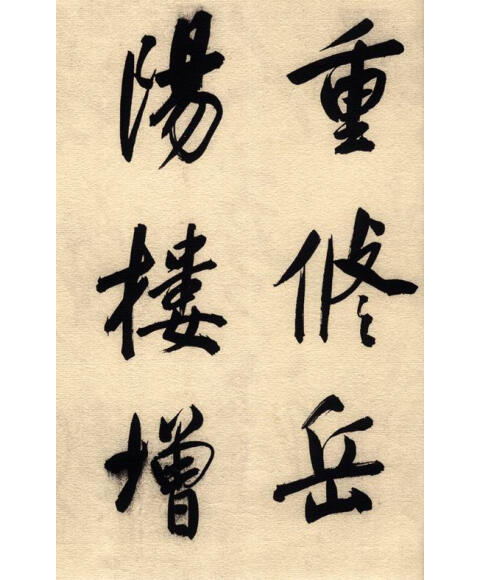 重修岳
陽楼增